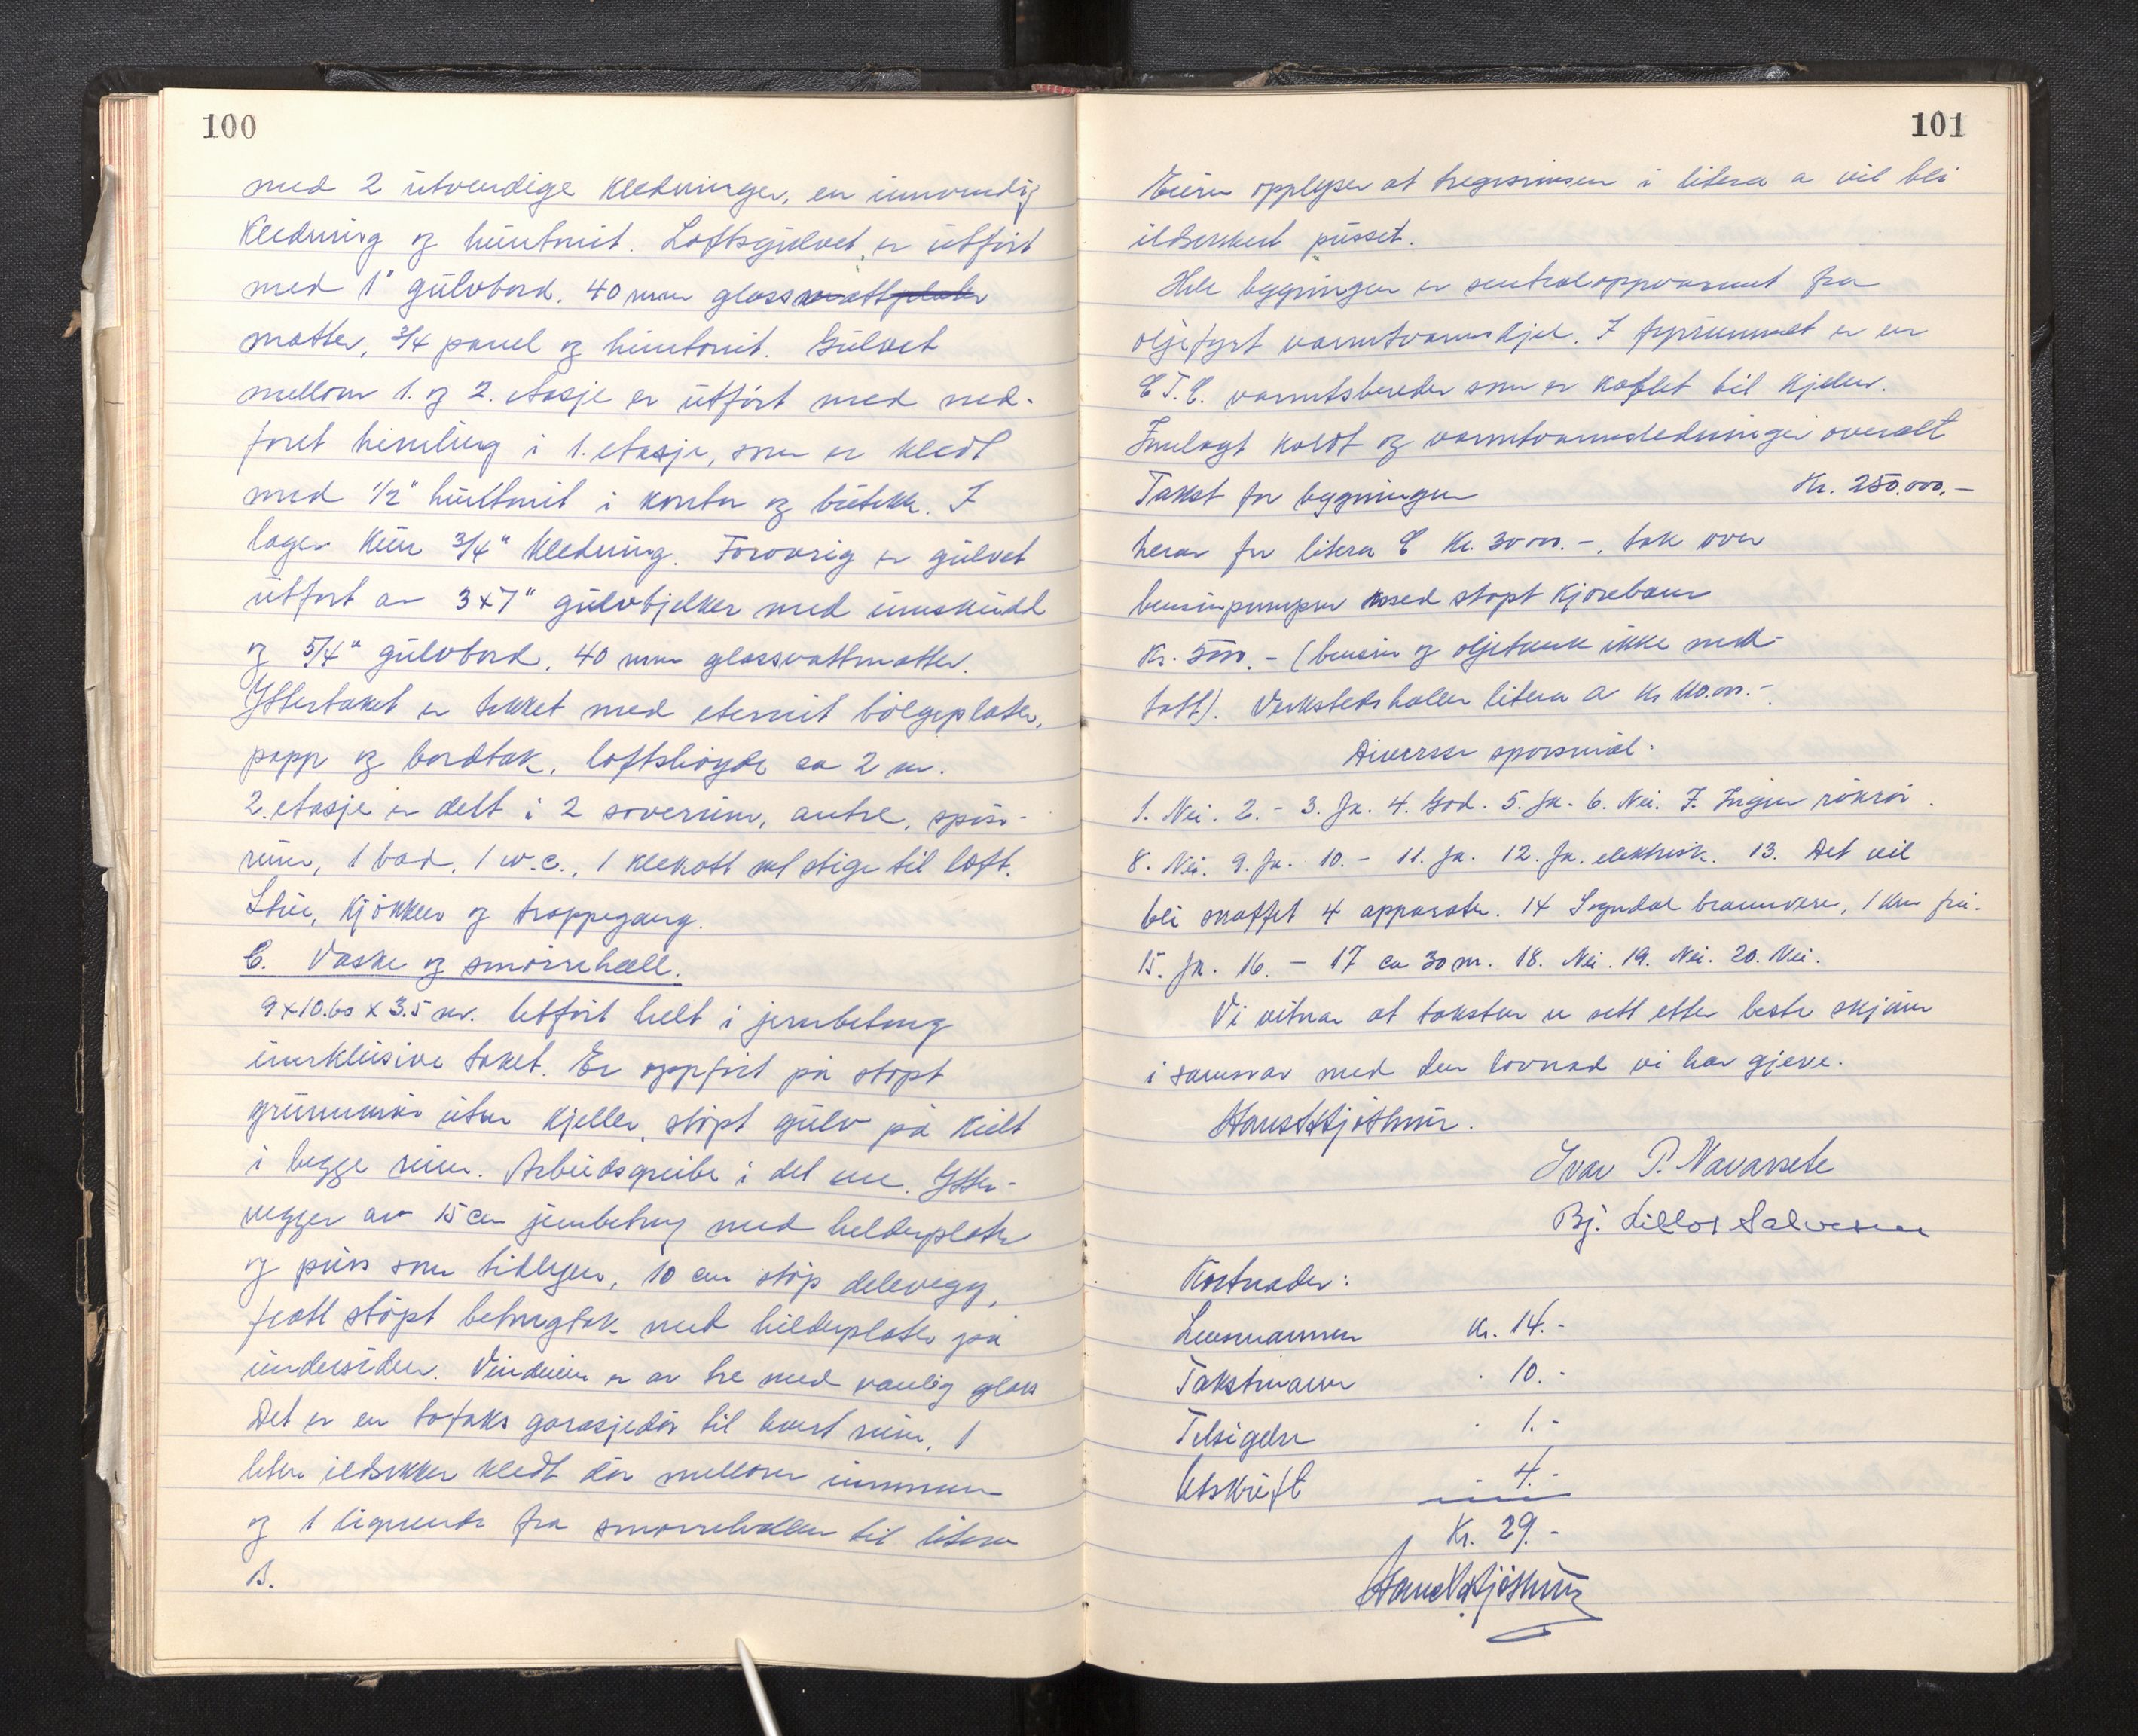 100
med 2 utvendige kledninger, en innvendig
kledning og huntonit. Loftsgulvet er utført
med 1" gulvbord, 40 mm glassvattplater
matter, 3/4 panel og huntonit. Gulvet
mellom 1. og 2. etasje er utført med ned-
foret himling i 1. etasje, som er kledt
med 1/2" huntonit i kontor og butikk. I
lager kun 3/4" kledning. Forøvrig er gulvet
utført av 3x7" gulvbjelker med innskudd
og 5/4" gulvbord, 40 mm glassvattmatter.
Yttertaket er tekket med eternit bølgeplater,
papp og bordtak, loftshøyde ca 2 m.
2. etasje er delt i 2 soverum, entre, spise-
rum, 1 bad, 1 w.c., 1 klekott m/ stige til loft.
Stue, kjøkken og trappegang.
C. Vaske og smørehall.
9x10.60 x 3.5 m. Utført helt i jernbetong
innklusive taket. Er oppført på støpt
grunnmur uten kjeller, støpt gulv på kult
i begge rum. Arbeidsgrube i det ene. Ytter-
vegger av 15 cm jernbetong med helderplater
og puss som tidligere, 10 cm støp delevegg,
flatt støpt betongtak med helderplater på
undersiden. Vinduene er av tre med vanlig glass
Det er en tofaks garasjedør til hvert rum, 1
liten ildsikker kledt dør mellom rummene
og 1 lignende fra smørehallen til litera
B.
101
Eieren opplyser at tregesimsen i litera a vil bli
ildsikkert pusset.
Hele bygningen er sentraloppvarmet fra
oljefyrt varmtvannskjel. I fyrrummet er en
C.T.C. varmtsbereder som er koblet til kjelen.
Innlagt koldt og varmtvannsledninger overalt
Takst for bygningen Kr. 250.000,-
herav for litera C kr. 30000.-, tak over
bensinpumper med støpt kjørebane
kr. 5000.- (bensin og oljetank ikke med-
tatt). Verkstedshallen litera a kr 110.000.-
Diverse spørsmål:
1. Nei. 2. - 3. Ja. 4. God. 5. Ja. 6. Nei. 7. Ingen rørør.
8. Nei. 9. Ja. 10. - 11. Ja. 12. Ja. elektrisk. 13. Det vil
bli skaffet 4 apparater. 14 Sogndal brannvern, 1 km frå.
15. Ja. 16. - 17 ca 30 m. 18. Nei. 19. Nei. 20. Nei.
Vi vitnar at taksten er sett etter beste skjønn
i samsvar med den lovnad vi har gjeve.
Ivar P. Navarsete
Bj. Lillos Salvesen
Kostnader:
Lensmannen Kr. 14.-
Takstmann " 10.-
Tilsigelse " 1.-
Utskrift - 4.-
Kr. 29.-